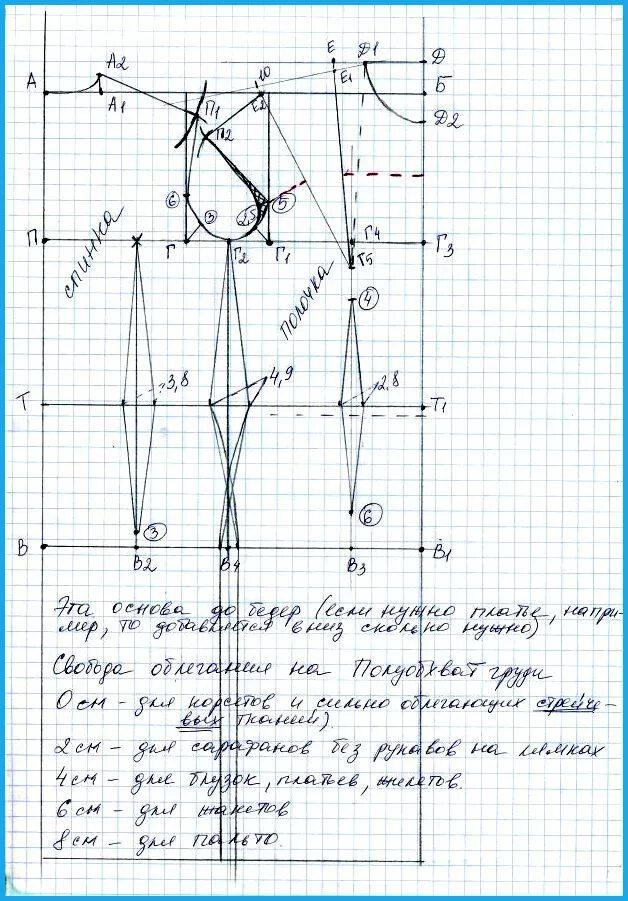 Е Д1 Д
А2 10 Е1
А А1 Е2 Б
П1 Д2
П2
6 5
3 2,5
П Г Г2 Г1 Г4 Г3
спинка Г5
полочка
4
3,8 4,9 2,8
Т Т1
6
3
В В1
В2 В4 В3
Эта основа до бедер (если нужно платье, напри-
мер, то добавляется вниз сколько нужно)
Свобода облегания на Полуобхват груди
0 см - для корсетов и сильно облегающих стрейче-
вых тканей).
2 см - для сарафанов без рукавов на лямках
4 см - для блузок, платьев, жилетов.
6 см - для жакетов
8 см - для пальто.